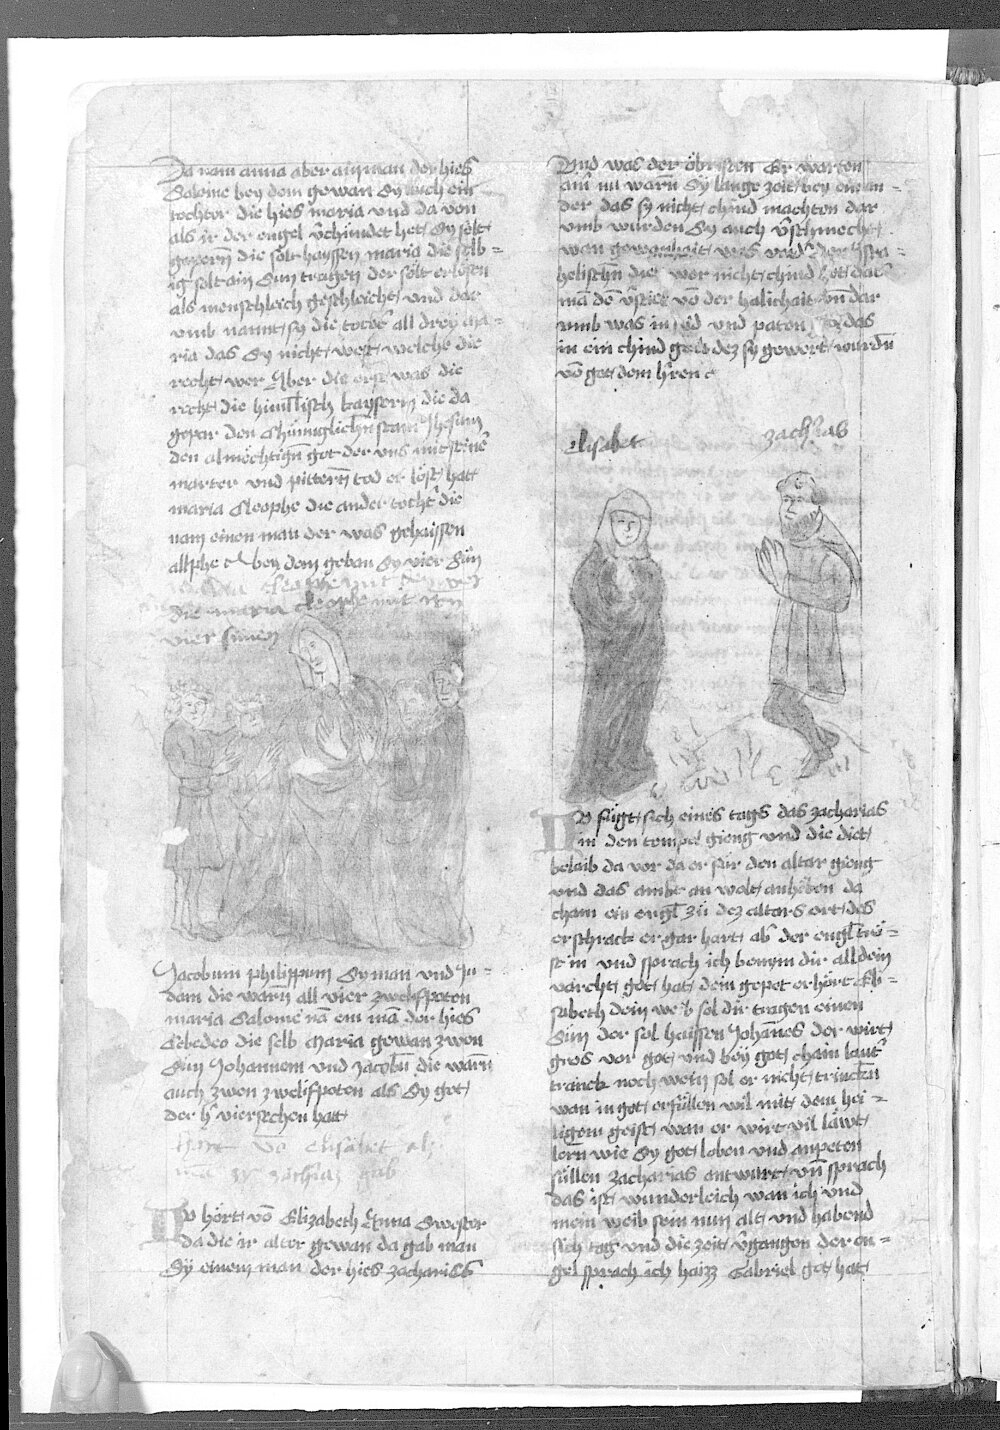 Da nam anna aber ainman der hies
Salome bey dem gewan Sy auch ein
tochter die hies maria und da von
als ir der engel v̄chundet het, Sy sölt
gepern̄ die solt hayssen maria die selb=
ig solt ain Sun tragen der sölt erlösen
als menschleich geschlëcht, und dar
umb nannt, sy die töcter all drey ma=
ria das Sy nicht, west, welche die
recht, wer Aber die erst was die
recht die himlisch kayserin die da
gepar den Chüniglichn̄ stam Jhesum
den almechtign̄ got der uns mit seine᷑
marter und pittern̄ tod er löst, hat,
maria Cleophe die ander tochter die
nam einen man der was gehaissen
allphe bey dem geban Sy vier Sün
die maria cleophe mit irn
vier sunen
Jacobum philippum Syman und Ju=
dam die warn̄ all vier zwelifpoten
maria Salome nā ein mā der hies
Zebedeo die selb Maria gewan zwen
Sün Johannem und Jacobū die warn̄
auch zwen zwelifpoten als Sy got,
der h᷑ viersechen hatt
Hort vō elisabet als
man sy zachrias gab
Du hört, vō Elizabeth Anna Swester
da die ir alter gewan da gab man
Sÿ einem man der hies Zacharias
Und was der öbristen Er warten
ain̄ nu warn̄ Sy lange zeit, bey einan=
der das sy nicht, chind machten dar
umb wurden Sy auch v̄schmecht,
wan gewonhait, was under der Isra=
helischn̄ diet wer nicht, chind het, daz
man den v̄sties vō der halichait un̄ dar
umb was in laid und paten das
in ein chind geb dez sy gewert, wurdn̄
vō got, dem h᷑ren
elisabet
zachrias
Du fügt, sich eines tags das zacharias
in den tempel gieng und die diet,
belaib da vor da er für den altar gieng
und das ambt an wolt, anheben da
cham ein engl zü dez altars ort, des
erschrack er gar hart, ab᷑ der engl trö=
st in und sprach ich benym dir all dein
varcht, got, hat, dein gepet erhört Eli=
sabeth dein weib sol dir tragen einen
Sün der sol haissen Johānes der wirt,
gros vor got, und bey got, chain laut᷑
tranck noch wein sol er nicht, trinckn̄
wan in got, erfüllen wil mit, dem hei=
ligem geist, wan er wirt, vil läwt,
lern̄ wie Sy got, loben und anpeten
süllen Zacharias antwurt, un̄ sprach
das ist, wunderleich wan ich und
mein weib sein nun alt, und habend
sich tag und die zeit, v̄gangen der en=
gel sprach ich haizz Gabriel got, hat,